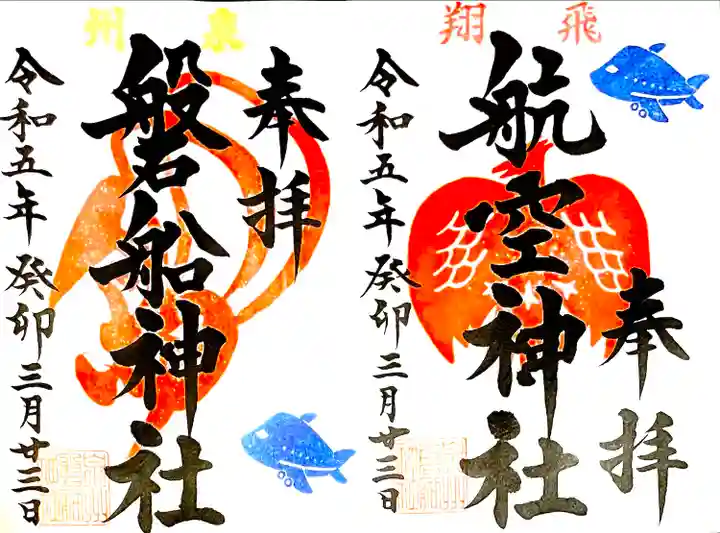 飛翔
奉拝
航空神社
令和五年癸卯三月廿三日
泉州
奉拝
磐船神社
令和五年癸卯三月廿三日